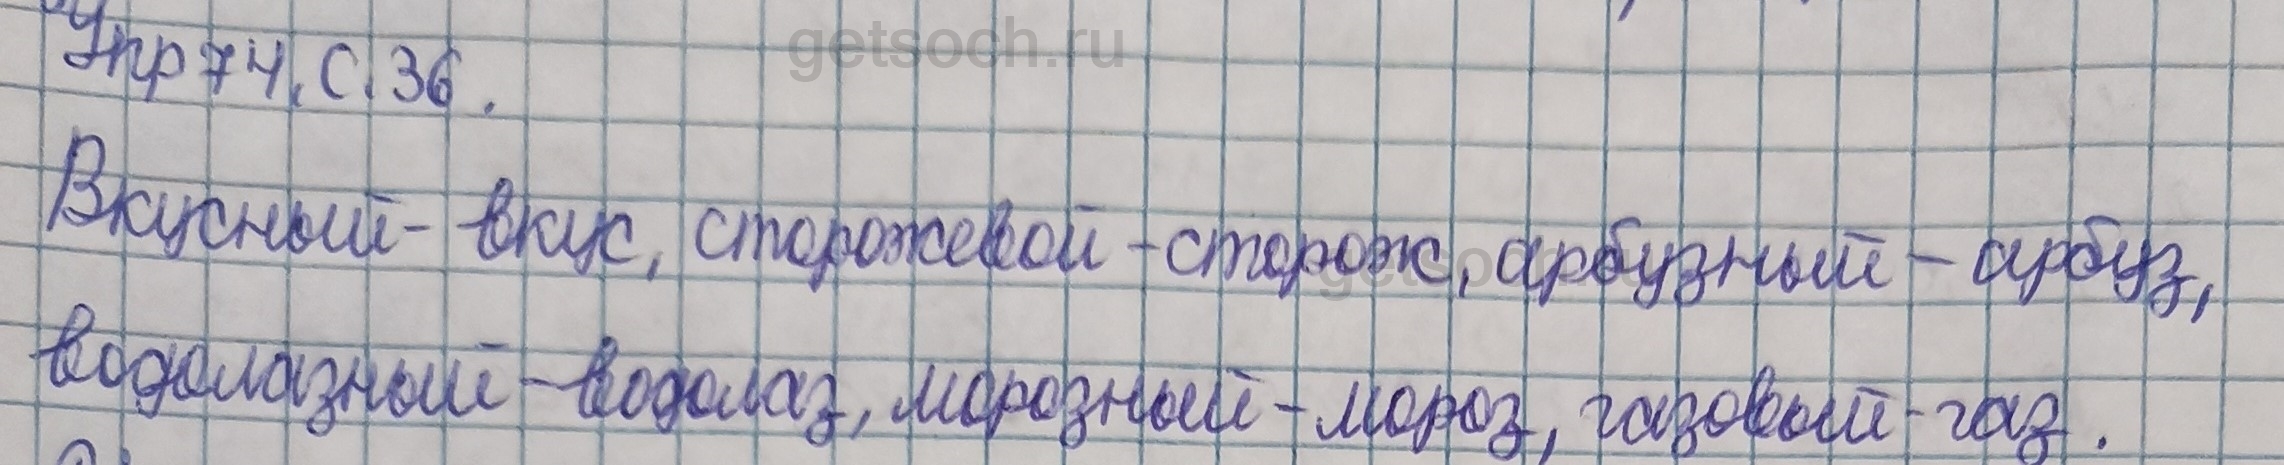 Упр 74, С. 36.
getsoch.ru
Вкусный - вкус, сторожевой - сторож, арбузный - арбуз,
водолазный - водолаз, морозный - мороз, газовый - газ.